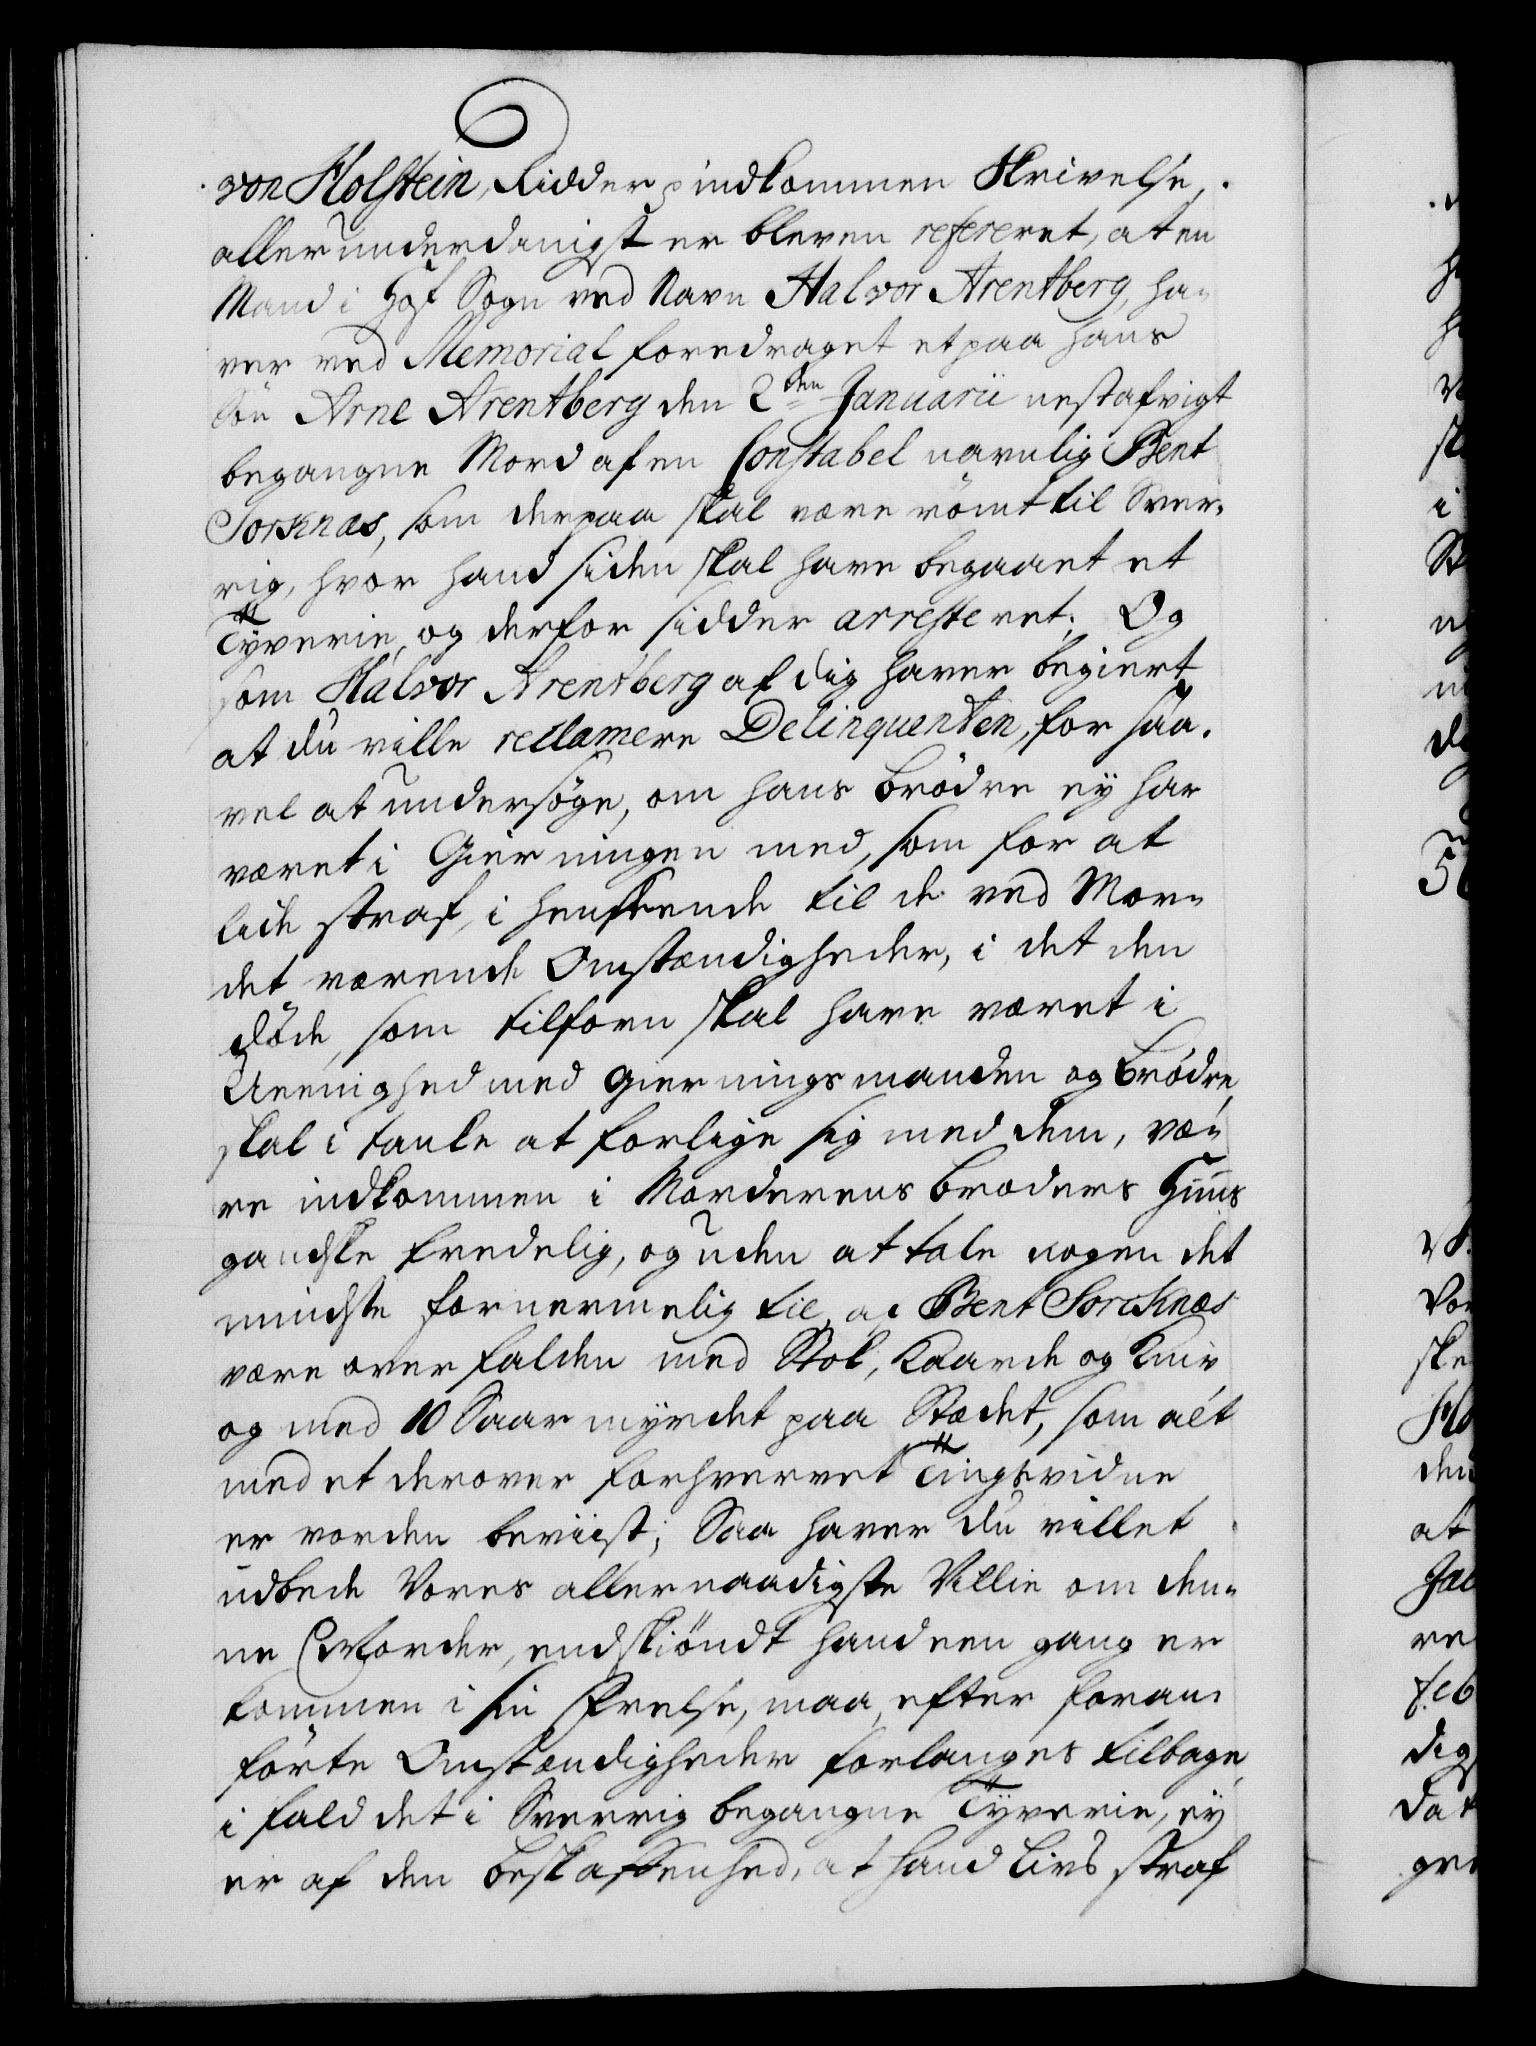 von Holstein, Ridder p indkommen Skrivelse,
allerunderdanigst er bleven refereret, at en
Mand i Hof Sogn ved Navn Halvor Arentberg, ha-
ver ved Memorial foredraget et paa hans
Sön Arne Arentberg den 2den Januarii nestafvigt
begangne Mord af en Constabel navnlig Bent
Sorknæs, som derpaa skal være römt til Sver-
rig, hvor hand siden skal have begaaet et
Tyverie, og derfor sidder arresteret; Og
som Halvor Arentberg af dig haver begiert,
at du ville reclamere Delinquenten, for saa-
vel at undersöge, om hans Brödre ey har
været i Gierningen med, som for at
lide straf, i henseende til de ved Mor-
det værende Omstændigheder, i det den
döde, som tilforn skal have været i
Ueenighed med Gierningsmanden og Brödre,
skal i tanke at forlige sig med dem, væ-
re indkommen i Morderens Broders Huus
gandske fredelig, og uden at tale nogen det
mindste fornermelig til, af Bent Sorcknæs
være overfalden med Stok, Kaarde og Kniv
og med 10 Saar myrdet paa Stædet, som alt
med et derover forhvervet Tingsvidne
er vorden beviist; Saa haver du villet
udbede Vores allernaadigste Villie om den-
ne Morder, endskiöndt hand een gang er
kommen i sin Frelse, maa, efter foran-
förte Omstændigheder forlanges tilbage,
i fald det i Sverrig begangne Tyverie, ey
er af den beskaffenhed, at hand Livs straf